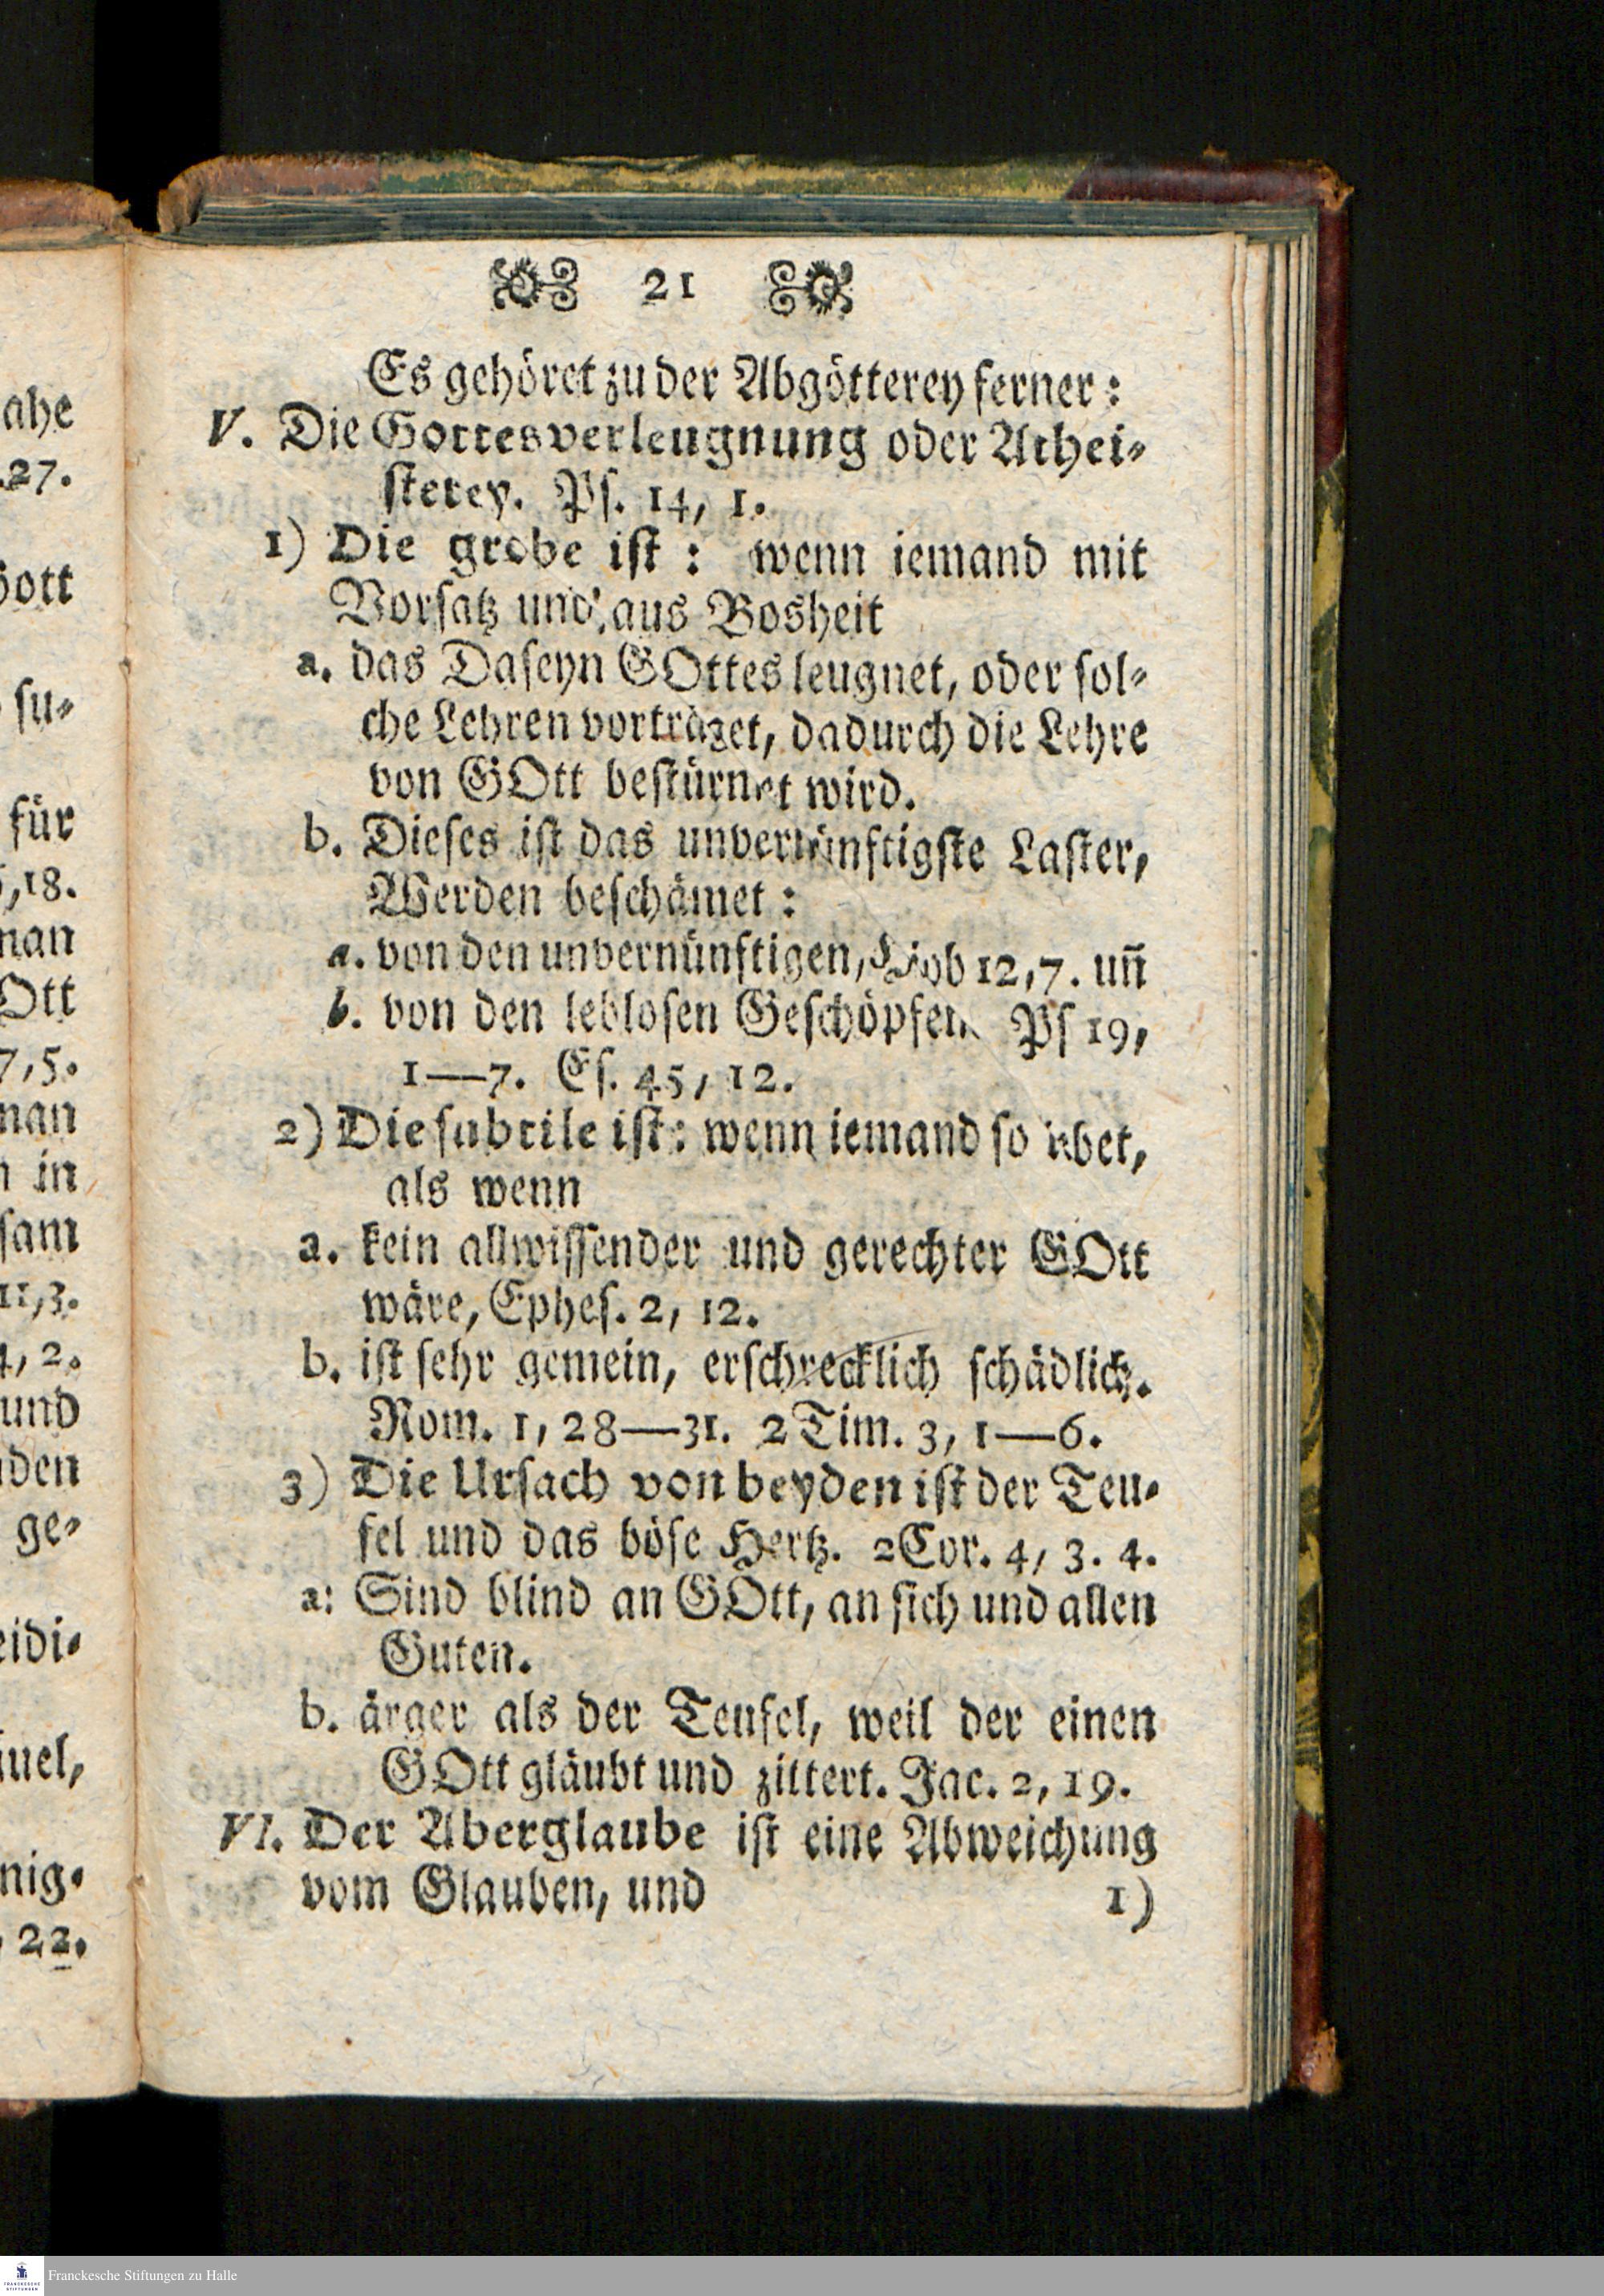 21
Es gehöret zu der Abgötterey ferner:
V. Die Gottesverleugnung oder Athei-
sterey. Ps. 14, 1.
1) Die grobe ist: wenn iemand mit
Vorsatz und aus Bosheit
a. das Daseyn GOttes leugnet, oder sol-
che Lehren vorträget, dadurch die Lehre
von GOtt bestürmet wird.
b. Dieses ist das unvernünftigste Laster,
Werden beschämet:
a. von den unvernünftigen, Hiob 12, 7. uñ
b. von den leblosen Geschöpfen Ps 19,
1—7. Es. 45, 12.
2) Die subtile ist: wenn iemand so lebet,
als wenn
a. kein allwissender und gerechter GOtt
wäre, Ephes. 2, 12.
b. ist sehr gemein, erschrecklich schädlich.
Rom. 1, 28—31. 2 Tim. 3, 1—6.
3) Die Ursach von beyden ist der Teu-
fel und das böse Hertz. 2 Cor. 4, 3. 4.
a: Sind blind an GOtt, an sich und allen
Guten.
b. ärger als der Teufel, weil der einen
GOtt gläubt und zittert. Jac. 2, 19.
VI. Der Aberglaube ist eine Abweichung
vom Glauben, und 1)
ahe
27.
Gott
su-
für
18.
man
Ott
7, 5.
man
in
sam
11, 3.
4, 2.
und
den
ge-
eidi-
uel,
nig-
22.
Franckesche Stiftungen zu Halle